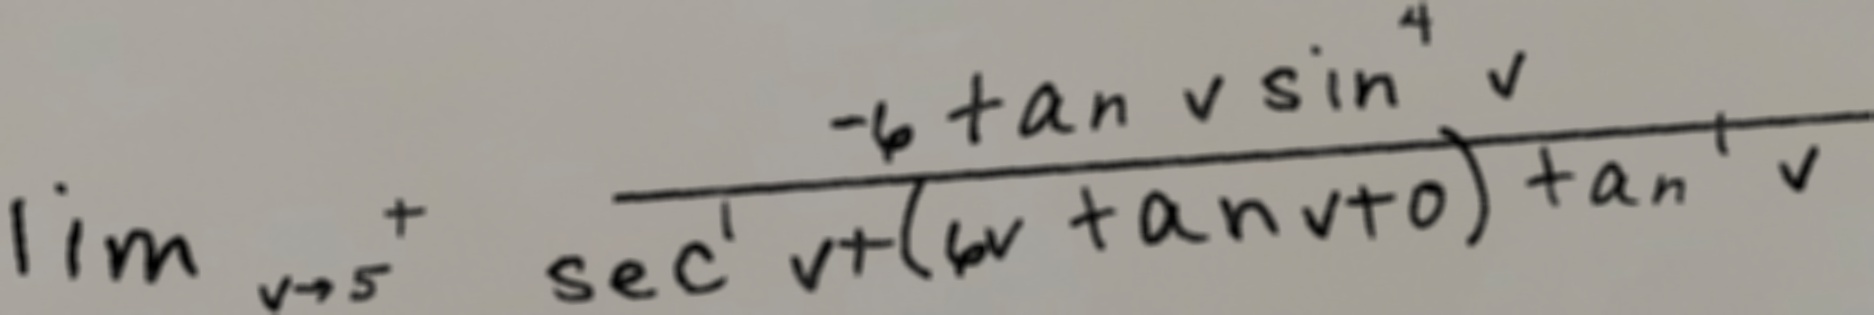 \lim_{v \to 5^+} \frac{-6 \tan v \sin^4 v}{\sec^1 v + (6v \tan v + 0) \tan^1 v}